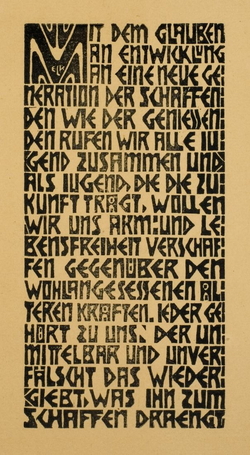 MIT DEM GLAUBEN
AN ENTWICKLUNG
AN EINE NEUE GE
NERATION DER SCHAFFEN
DEN WIE DER GENIESSEN
DEN RUFEN WIR ALLE JU
GEND ZUSAMMEN UND
ALS JUGEND, DIE DIE ZU
KUNFT TRÄGT, WOLLEN
WIR UNS ARM- UND LE
BENSFREIHEIT VERSCHAF
FEN GEGENÜBER DEN
WOHLANGESESSENEN ÄL
TEREN KRÄFTEN. JEDER GE
HÖRT ZU UNS, DER UN
MITTELBAR UND UNVER
FÄLSCHT DAS WIEDER
GIEBT, WAS IHN ZUM
SCHAFFEN DRAENGT